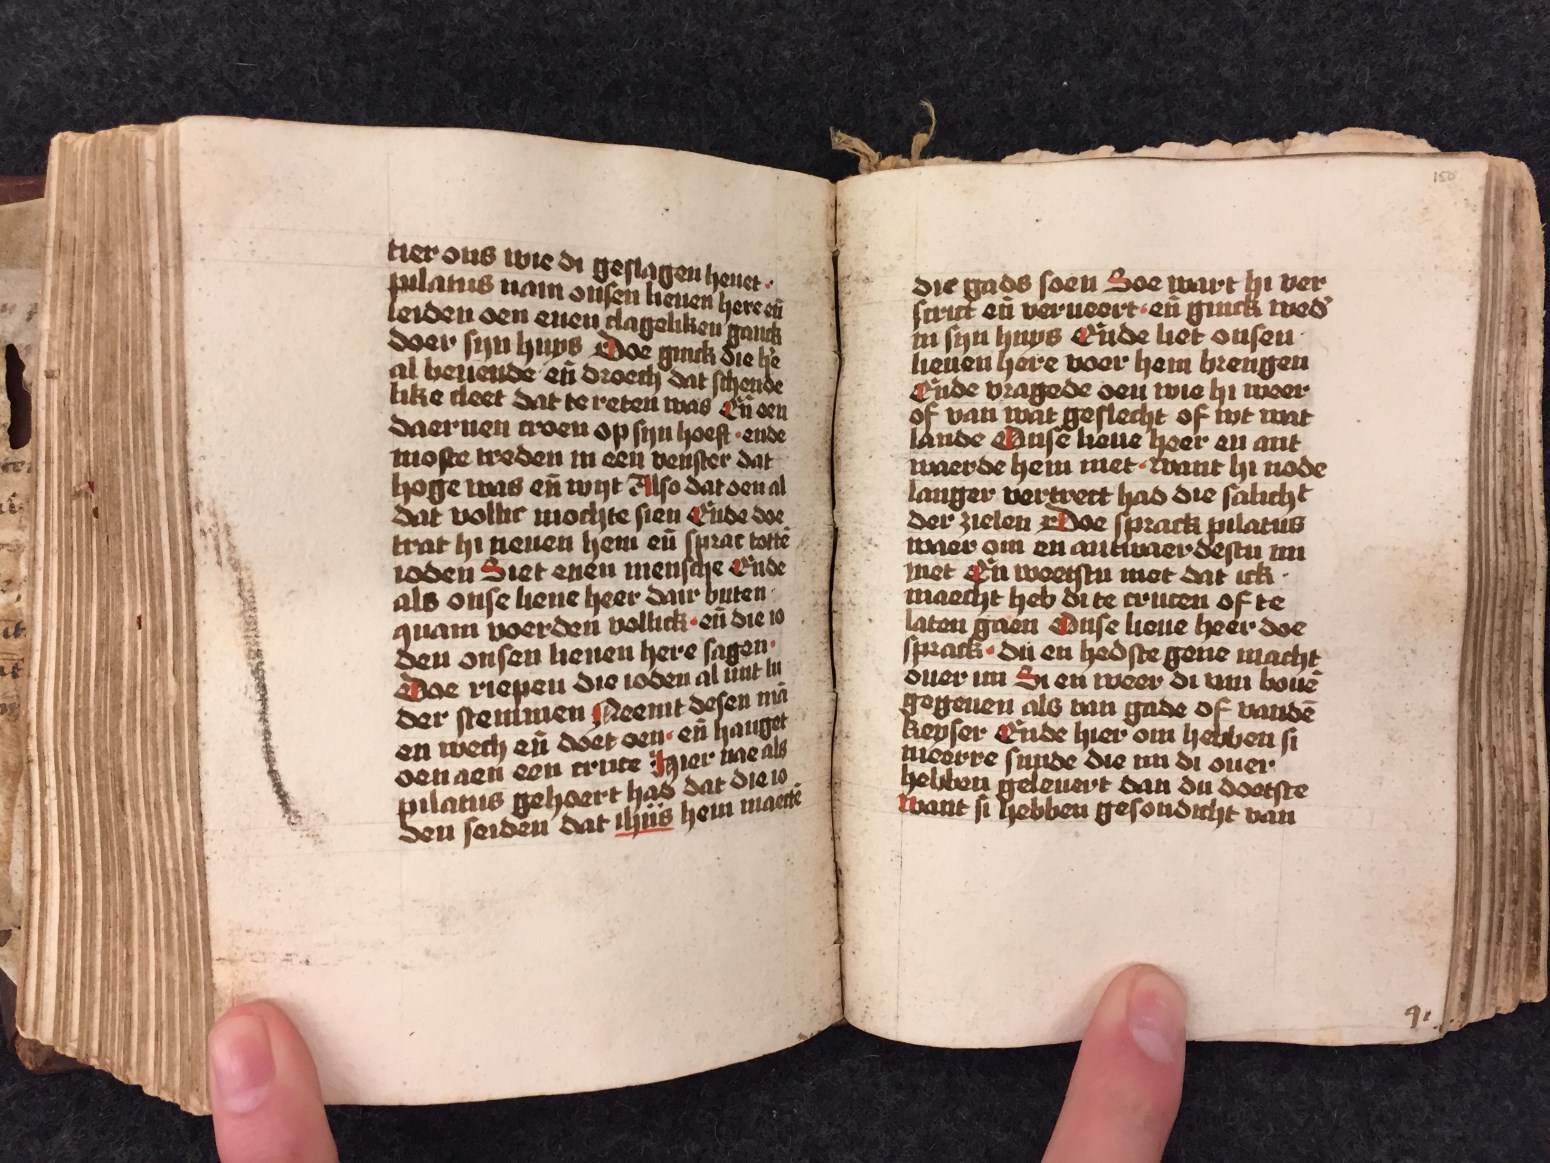 tier ons wie di geslagen heuet ·
pilatus nam onsen lieuen here en̄
leiden oen enen dageliken ganck
doer sijn huys Doe ginck die he͛
al beuende en̄ droech dat schende
like cleet dat te reten was En̄ een
daernen croen op sijn hoeft · ende
moste treden in een venster dat
hoge was en̄ wijt Also dat oen al
dat vollic mochte sien Ende doe
trat hi neuen hem en̄ sprac totte̅
ioden Siet enen mensche Ende
als onse lieue heer dair buten
quam voerden vollick · en̄ die io
den onsen lieuen here sagen ·
Doe riepen die ioden al mit lu
der stemmen Neemt desen ma̅
en wech en̄ doet oen · en̄ hanget
oen aen een cruce Hier nae als
pilatus gehoert had dat die io
den seiden dat ihūs hem maecte̅
150
die gads soen Soe wart hi ver
scrict en̄ verueert · en̄ ginck wed͛
in sijn huys Ende liet onsen
lieuen here voer hem brengen
Ende vragede oen wie hi weer
of van wat geslecht of wt wat
lande Onse lieue heer en ant
waerde hem niet · want hi node
langer vertrect had die salicht
der zielen Doe sprack pilatus
waer om en antwaerdestu mi
niet En weetstu niet dat ick ·
maecht heb di te crucen of te
laten gaen Onse lieue heer doe
sprack · du en hedste gene macht
ouer mi Si en weer di van boue̅
gegeuen als van gade of vande̅
keyser Ende hier om hebben si
meerre sunde die mi di ouer
hebben geleuert dan du doetste
want si hebben gesondicht van